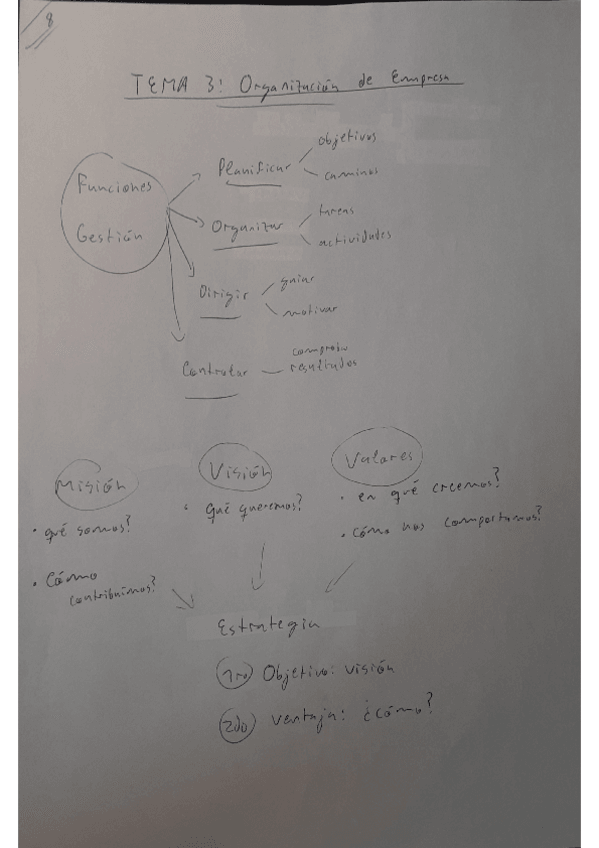 8
TEMA 3: Organización de Empresa
Funciones
Gestión
Planificar
objetivos
caminos
Organizar
tareas
actividades
Dirigir
guiar
motivar
Controlar
resultados
Misión
• qué somos?
• Cómo
contribuimos?
Visión
• Qué queremos?
Valores
• en qué creemos?
• Cómo nos comportamos?
Estrategia
1ro Objetivo: visión
2do Ventaja: ¿cómo?